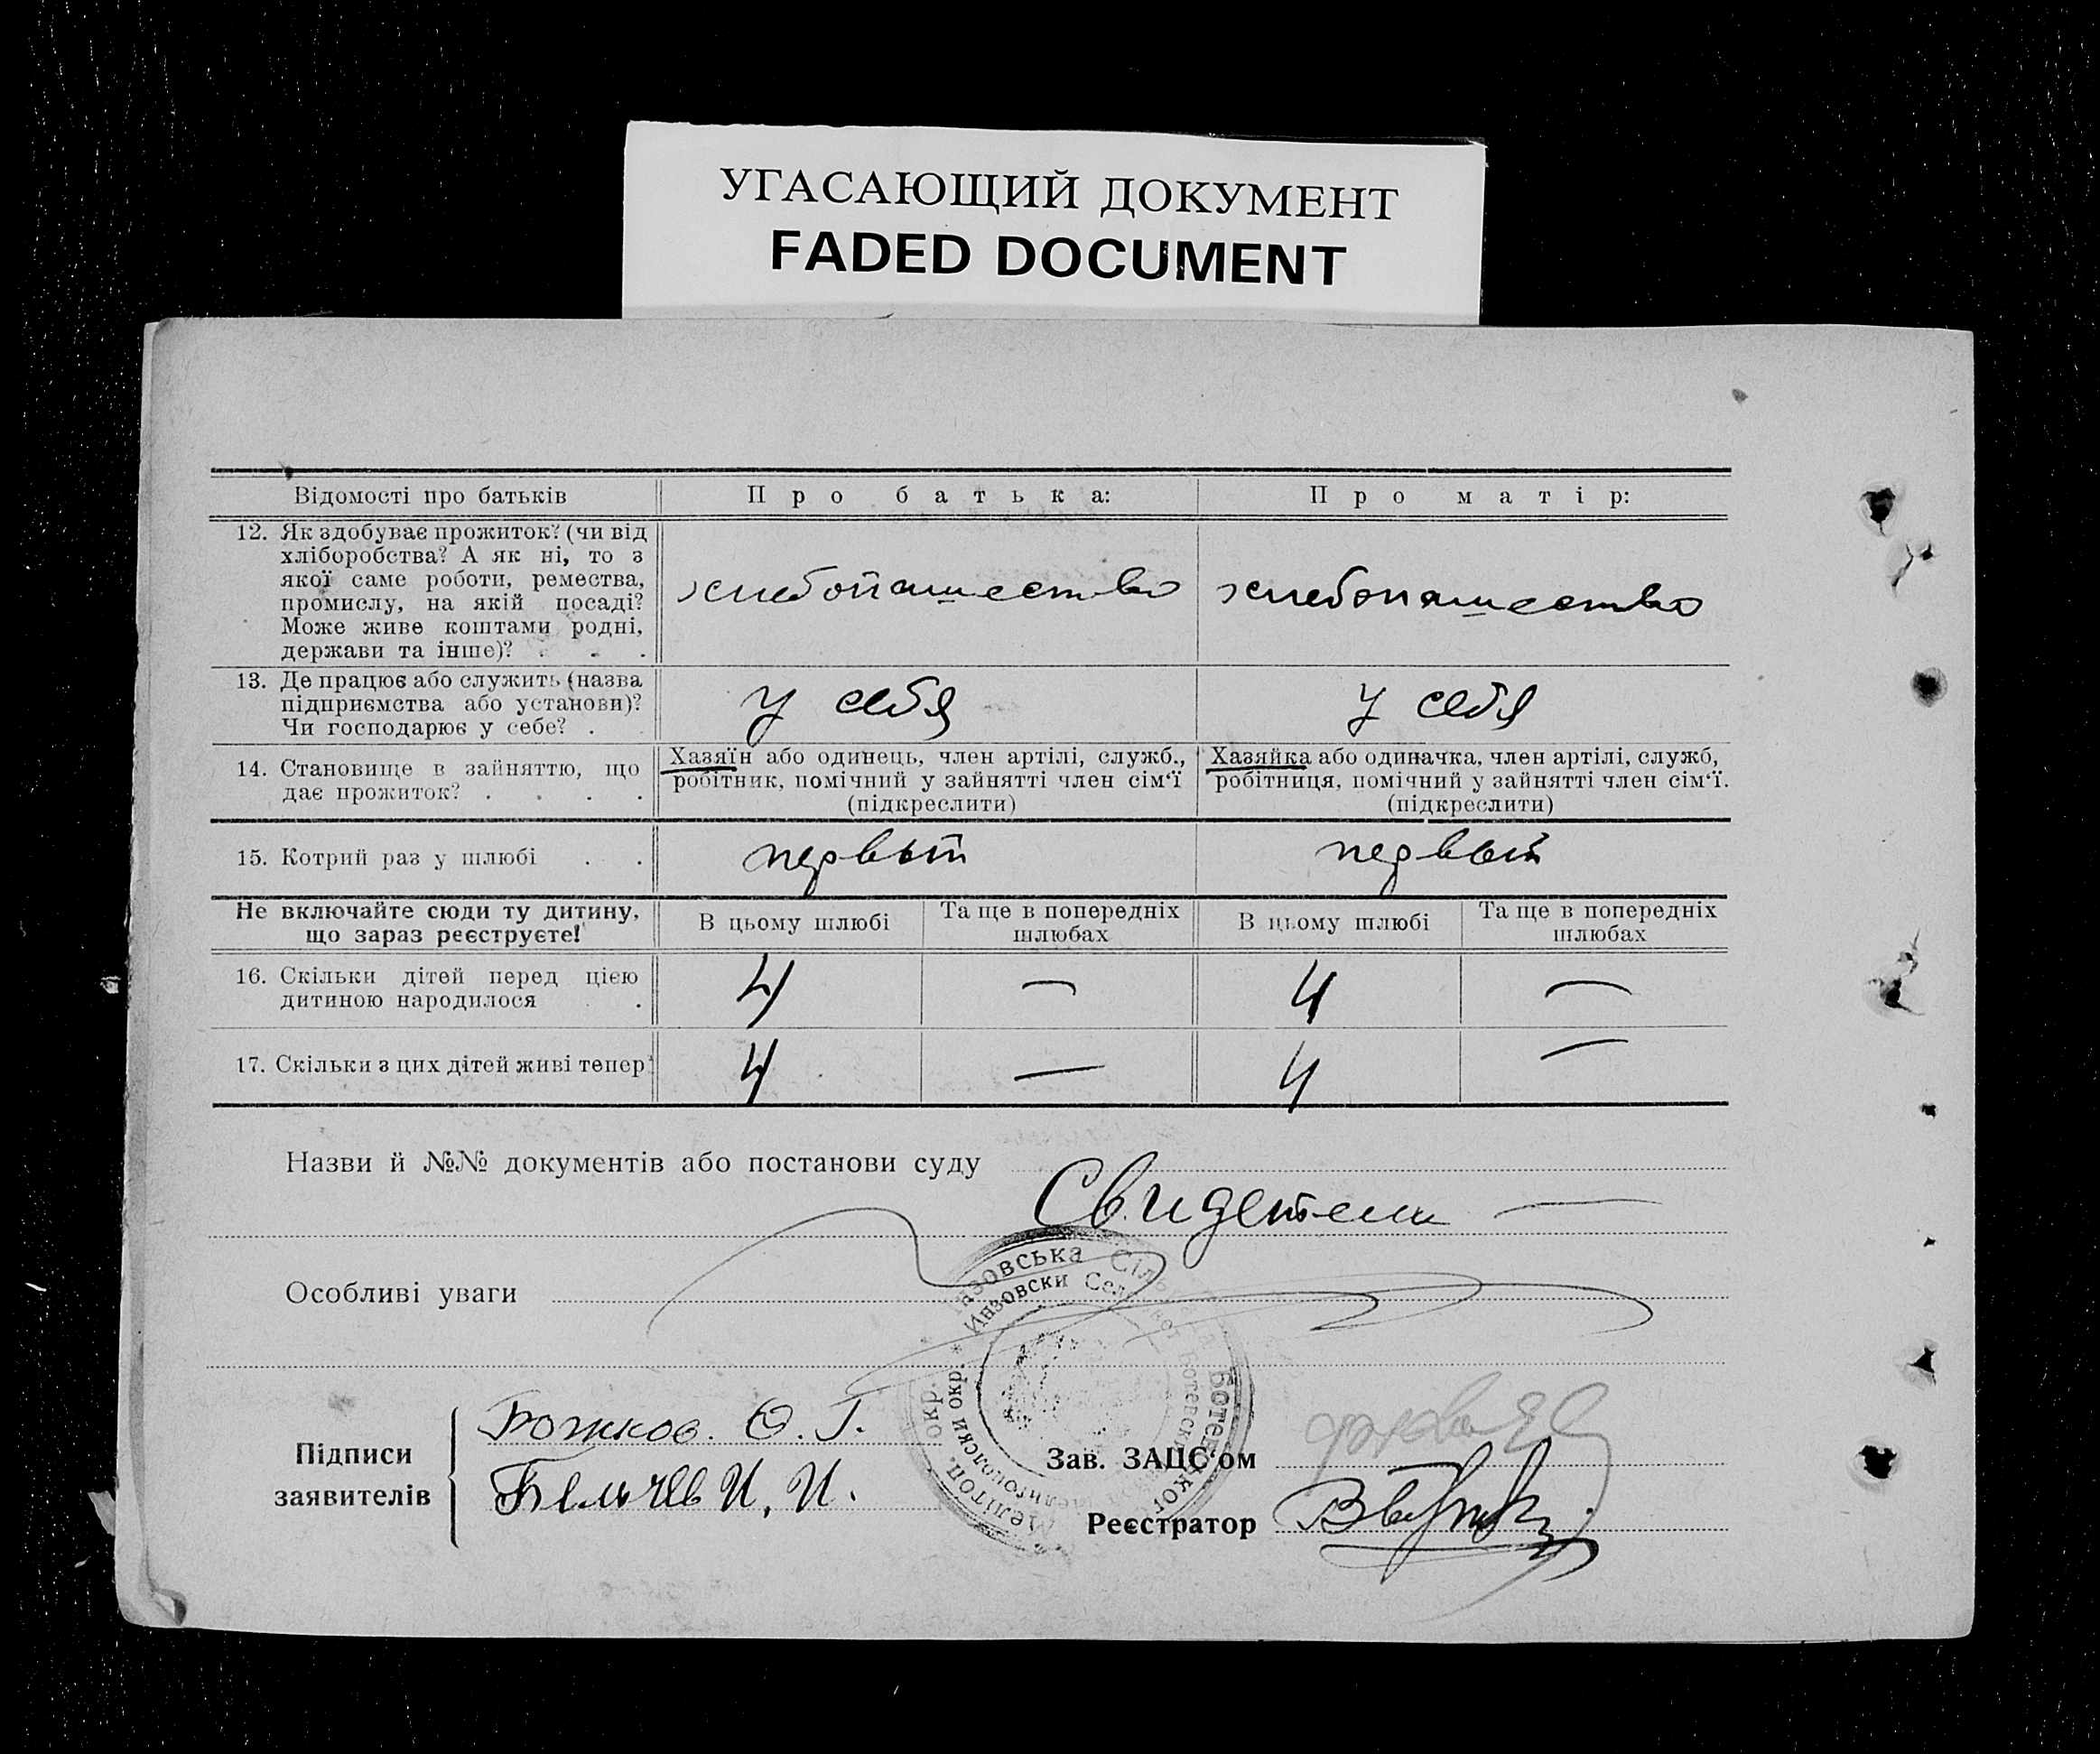 УГАСАЮЩИЙ ДОКУМЕНТ
FADED DOCUMENT
Відомості про батьків
Про батька:
Про матір:
12. Як здобуває прожиток? (чи від
хліборобства? А як ні, то з
якої саме роботи, ремества,
промислу, на якій посаді?
Може живе коштами родні,
держави та інше)? . . .
хлебопашество
хлебопашество
13. Де працює або служить (назва
підприємства або установи)?
Чи господарює у себе? .
у себя
у себя
14. Становище в зайняттю, що
дає прожиток? . . . .
Хазяїн або одинець, член артілі, служб.,
робітник, помічний у зайнятті член сім'ї
(підкреслити)
Хазяйка або одиначка, член артілі, служб,
робітниця, помічний у зайнятті член сім'ї.
(підкреслити)
15. Котрий раз у шлюбі . .
первый
первый
Не включайте сюди ту дитину,
що зараз реєструєте!
В цьому шлюбі
Та ще в попередніх
шлюбах
В цьому шлюбі
Та ще в попередніх
шлюбах
16. Скільки дітей перед цією
дитиною народилося .
4
—
4
—
17. Скільки з цих дітей живі тепер
4
—
4
—
Назви й №№ документів або постанови суду
Свидетели —
Особливі уваги
Підписи
заявителів
Божков. Ѳ. Г.
И. И.
Зав. ЗАЦС'ом
Реєстратор
Инзовски
Мелітоп. окр.
Мелитополски окр. *